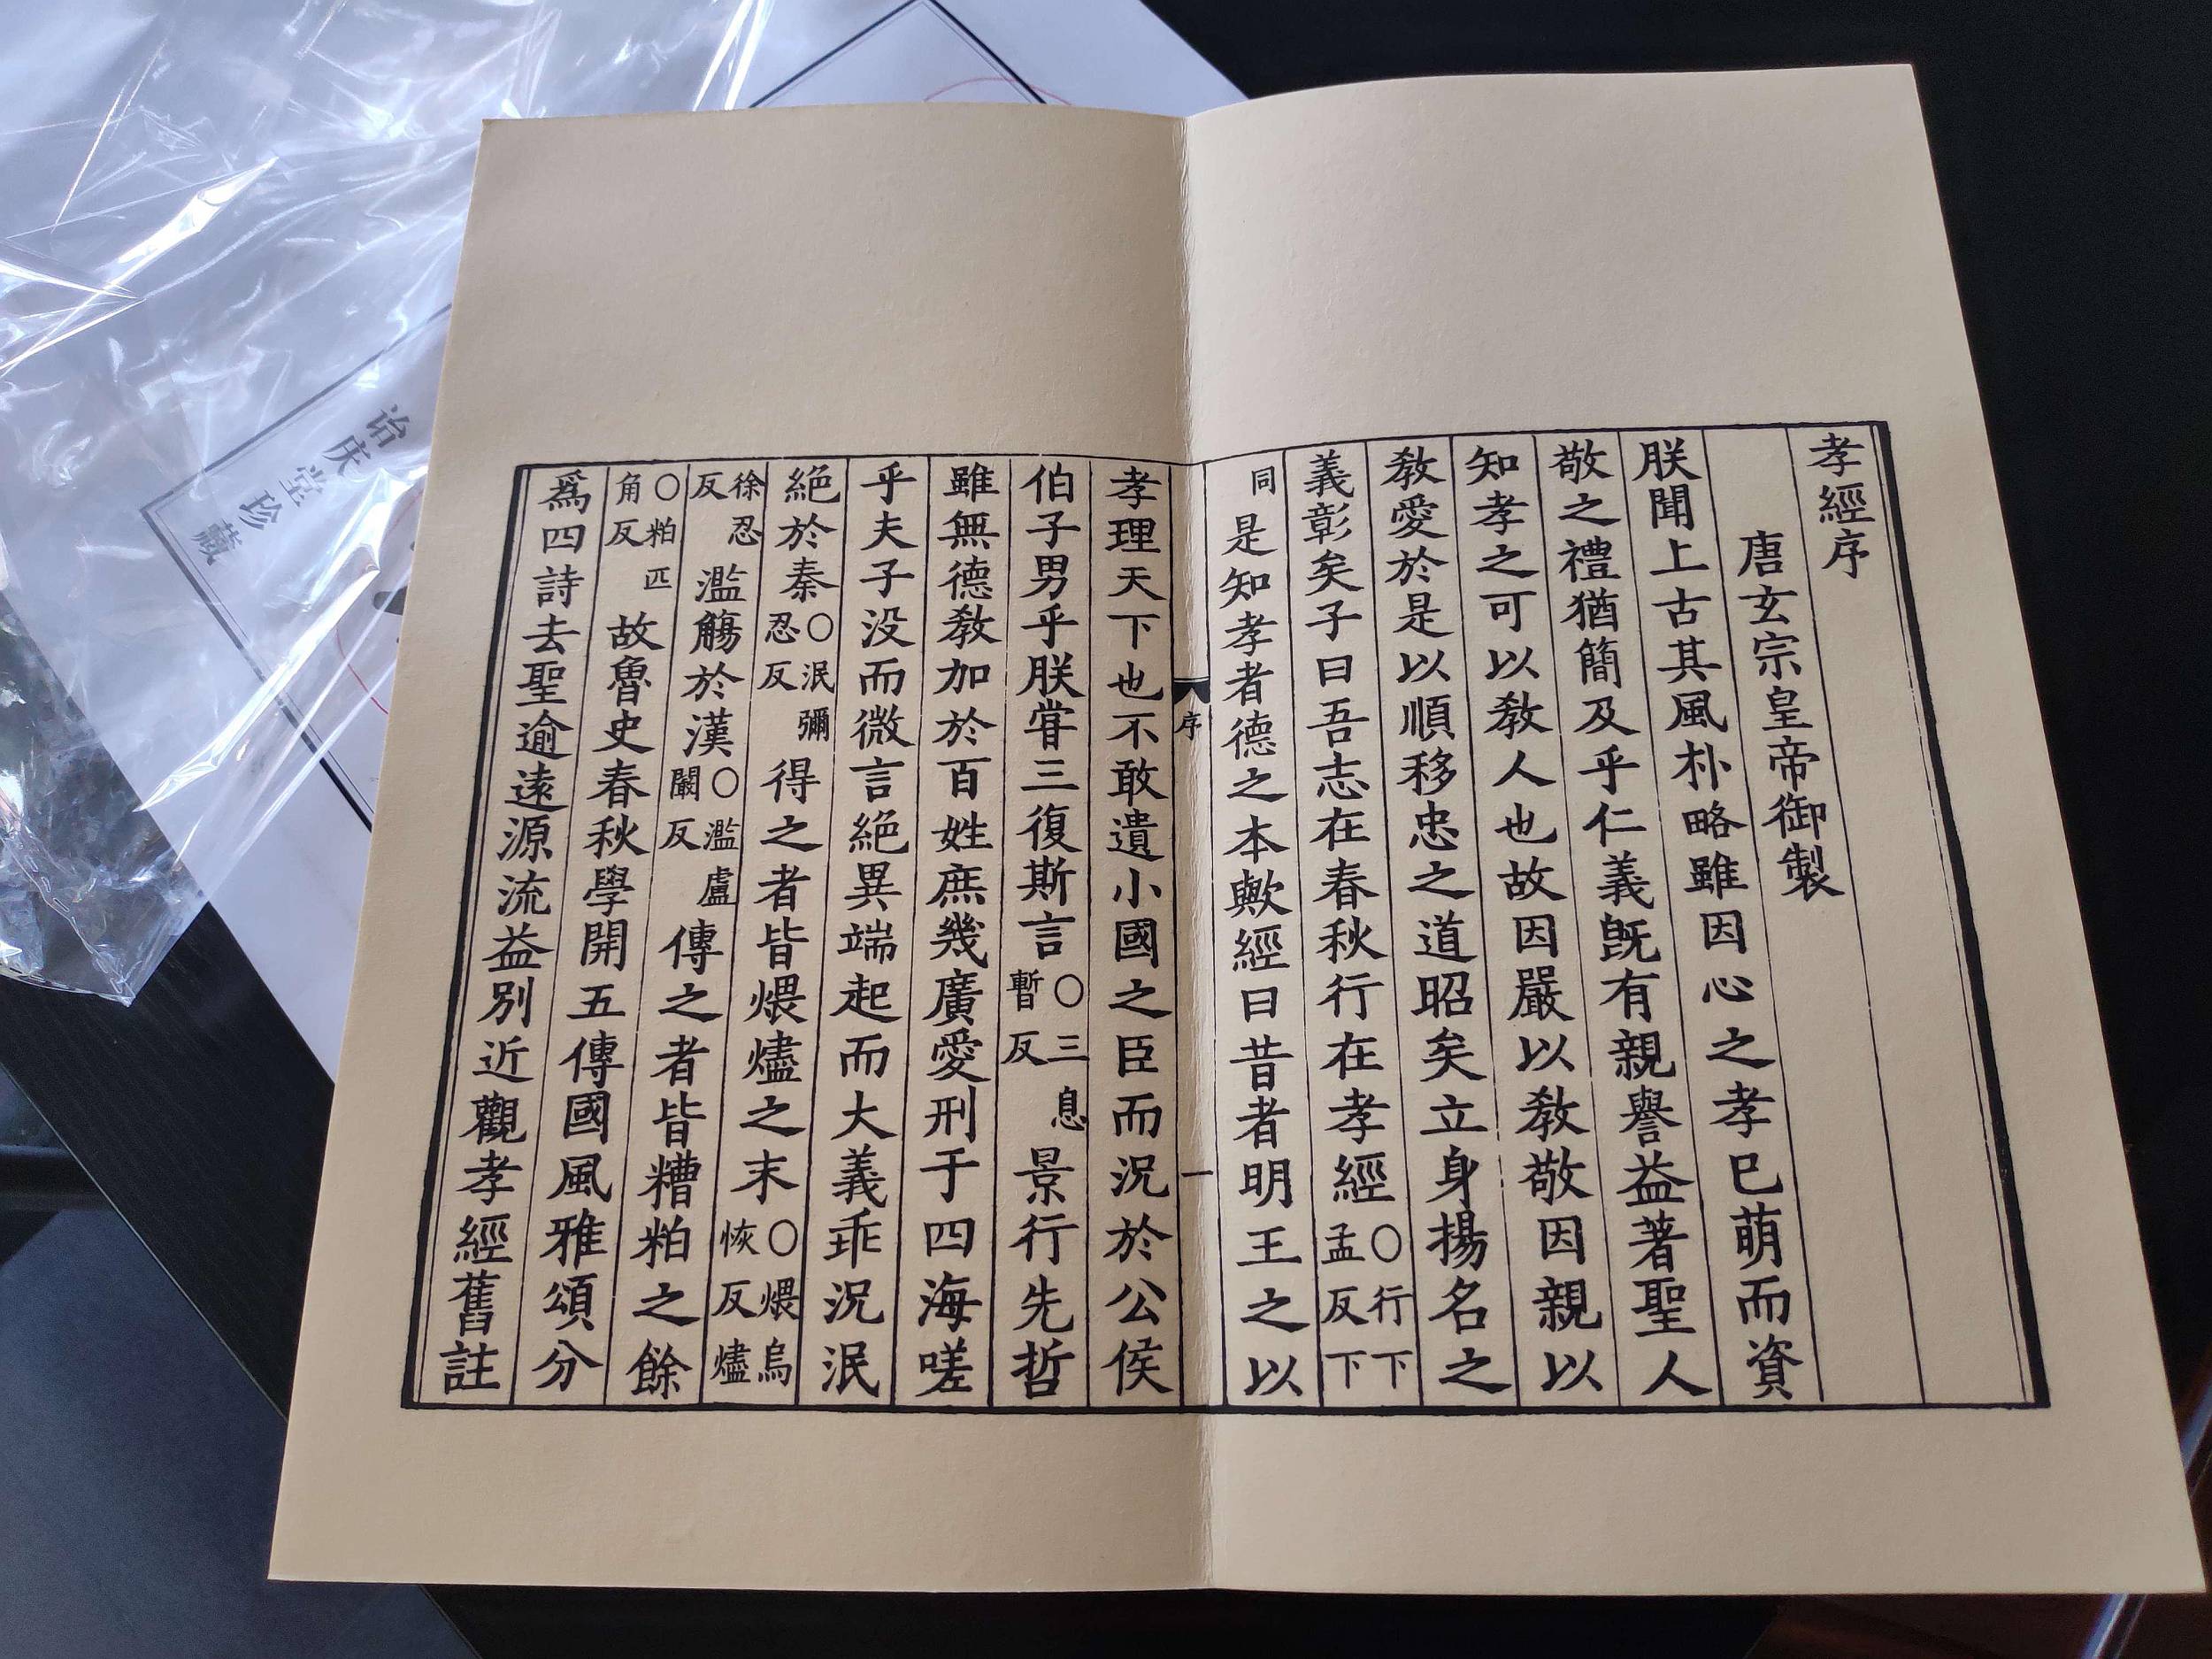 孝經序
唐玄宗皇帝御製
朕聞上古其風朴略雖因心之孝已萌而資
敬之禮猶簡及乎仁義旣有親譽益著聖人
知孝之可以敎人也故因嚴以敎敬因親以
敎愛於是以順移忠之道昭矣立身揚名之
義彰矣子曰吾志在春秋行在孝經○行下孟反下
同是知孝者德之本歟經曰昔者明王之以
序 一
孝理天下也不敢遺小國之臣而況於公侯
伯子男乎朕甞三復斯言○三息暫反景行先哲
雖無德敎加於百姓庶幾廣愛刑于四海嗟
乎夫子没而微言絶異端起而大義乖況泯
絶於秦○泯彌忍反得之者皆煨燼之末○煨烏恢反燼
徐忍反濫觴於漢○濫盧闞反傳之者皆糟粕之餘
○粕匹角反故魯史春秋學開五傳國風雅頌分
爲四詩去聖逾遠源流益別近觀孝經舊註
诒庆堂珍藏